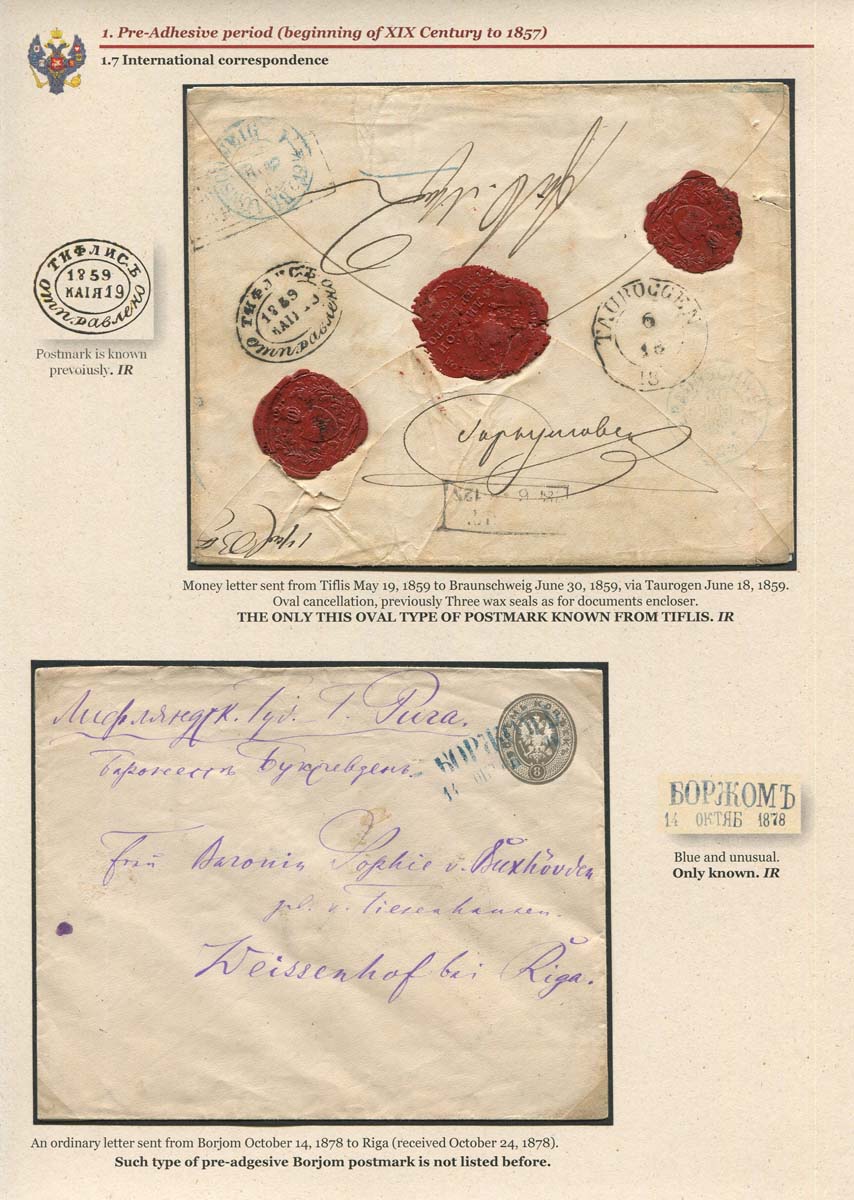 1. Pre-Adhesive period (beginning of XIX Century to 1857)
1.7 International correspondence
ТИФЛИСЪ
1859
МАІЯ 19
отправлено
Postmark is known
prevoiusly. IR
ТИФЛИСЪ
1859
МАІЯ
отправлено
TAUROGGEN
6
18
18
Money letter sent from Tiflis May 19, 1859 to Braunschweig June 30, 1859, via Taurogen June 18, 1859.
Oval cancellation, previously Three wax seals as for documents encloser.
THE ONLY THIS OVAL TYPE OF POSTMARK KNOWN FROM TIFLIS. IR
Лифляндск. Губ. Г. Рига.
Баронессѣ Буксгевденъ.
БОРЖ
14 ОК
8
Frau Baronin Sophie v. Buxhövden
geb. v. Tiesenhausen.
Weissenhof bei Riga.
БОРЖОМЪ
14 ОКТЯБ 1878
Blue and unusual.
Only known. IR
An ordinary letter sent from Borjom October 14, 1878 to Riga (received October 24, 1878).
Such type of pre-adgesive Borjom postmark is not listed before.